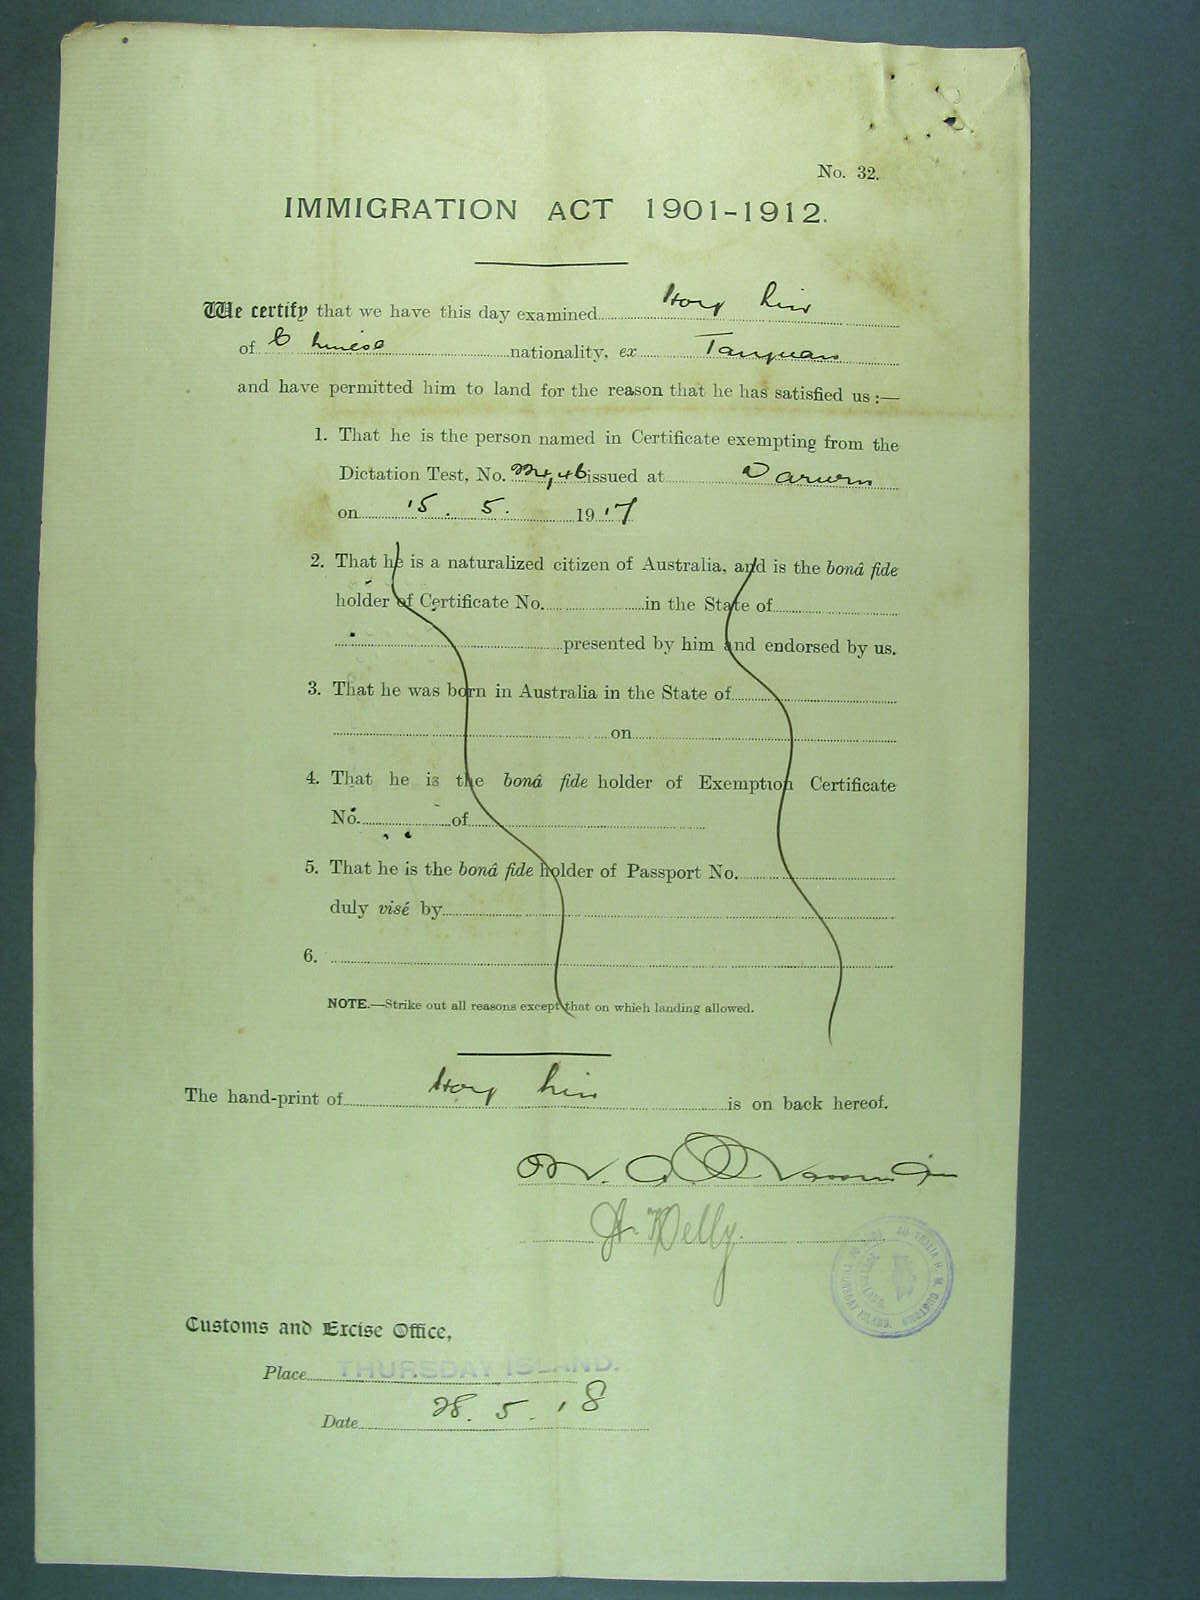 No. 32.
IMMIGRATION ACT 1901-1912.
We certify that we have this day examined
of Chinese nationality, ex Tanyuan
and have permitted him to land for the reason that he has satisfied us :—
1. That he is the person named in Certificate exempting from the
Dictation Test, No. issued at Darwin
on 15. 5. 1917
2. That he is a naturalized citizen of Australia, and is the bonâ fide
holder of Certificate No. in the State of
presented by him and endorsed by us.
3. That he was born in Australia in the State of
on
4. That he is the bonâ fide holder of Exemption Certificate
No. of
5. That he is the bonâ fide holder of Passport No.
duly visé by
6.
NOTE.—Strike out all reasons except that on which landing allowed.
The hand-print of is on back hereof.
Customs and Excise Office,
Place THURSDAY ISLAND.
Date 28. 5. '18